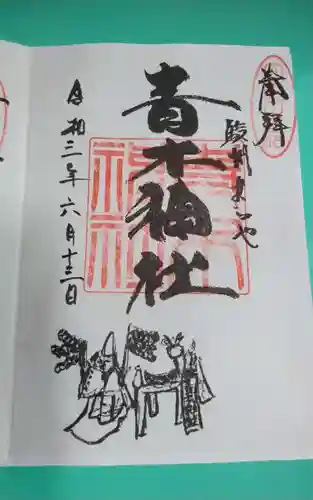 奉拝
駿州 まつや
青木神社
令和三年六月十三日